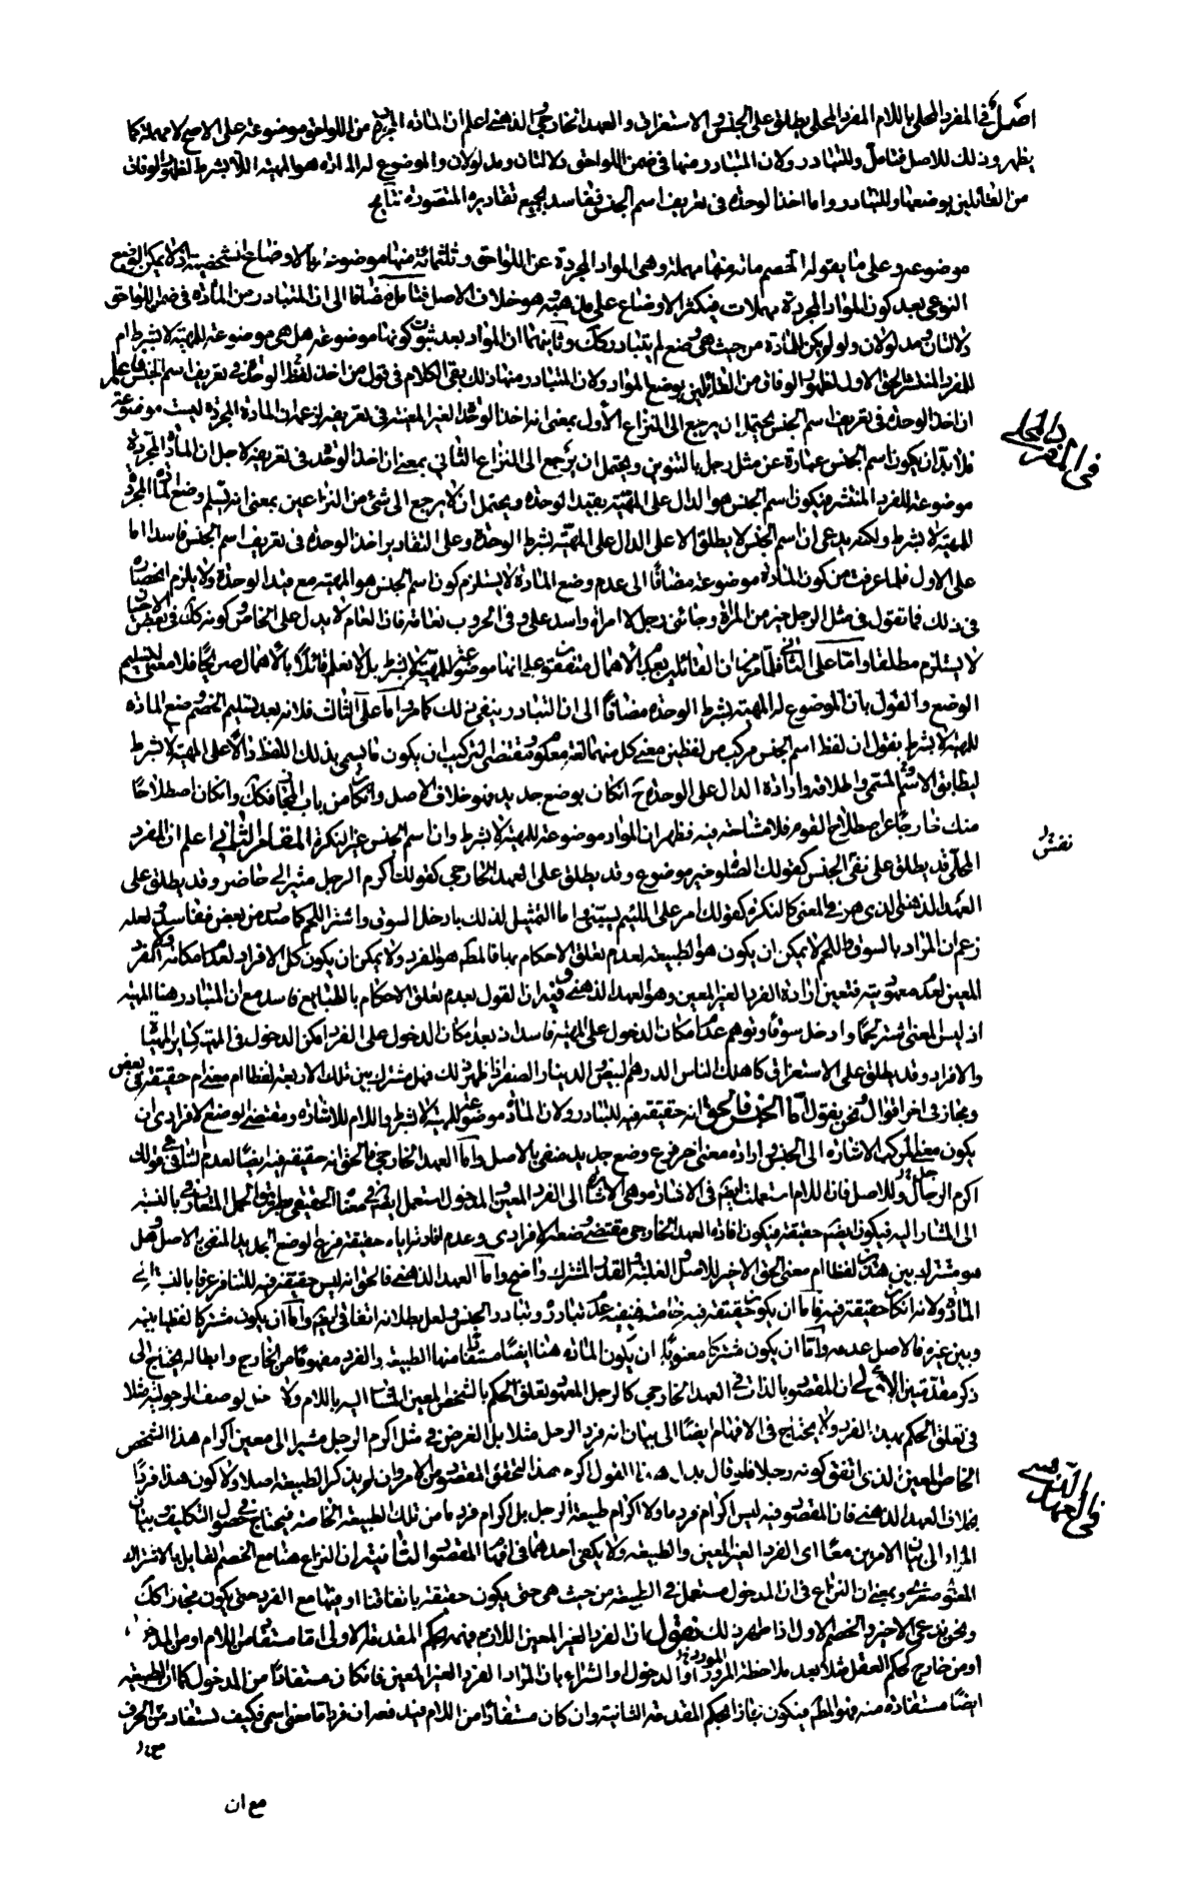 اصل في المفرد المحلى باللام المفرد المحلى يطلق على الجنس والاستغراق والعهد الخارجي والذهني اعلم ان المادة المجردة من اللواحق موضوعة على الاصح لا مهملة كما
يظهر وذلك للاصل فتامل وللتبادر ولان المتبادر منها في ضمن اللواحق دلالتان ومدلولان والموضوع له المادة هو المهية اللا بشرط لظهور الوفاق
من القائلين بوضعها وللتبادر واما اخذ الوحدة في تعريف اسم الجنس ففاسد بجميع تقاديره المتصورة نتائج
موضوعه وعلى ما يقوله الخصم مائة منها مهملة وهي المواد المجردة عن اللواحق وثلثمائة منها موضوعة بالاوضاع الشخصية اذ لا يمكن الوضع
النوعي بعد كون المواد المجردة مهملات فيكثر الاوضاع على مذهبه وهو خلاف الاصل فتامل مضافا الى ان المتبادر من المادة في ضمن اللواحق
دلالتان ومدلولان ولو لم يكن للمادة من حيث هي وضع لم يتبادر كك وثانيهما ان المواد بعد ثبوت كونها موضوعة هل هي موضوعة للمهية لا بشرط ام
للفرد المنتشر الحق الاول لظهور الوفاق من القائلين بوضع المواد ولان المتبادر منها ذلك بقي الكلام في قول من اخذ لفظ الوحدة في تعريف اسم الجنس فاعلم
ان اخذ الوحدة في تعريف اسم الجنس يحتمل ان يرجع الى النزاع الأول بمعنى انه اخذ الوحدة الغير المعينة في تعريفه لزعمه ان المادة المجردة ليست موضوعة
فلا بد ان يكون اسم الجنس عبارة عن مثل رجل بالتنوين ويحتمل ان يرجع الى النزاع الثاني بمعنى ان اخذ الوحدة في تعريفه لاجل ان المادة المجردة
موضوعة للفرد المنتشر فيكون اسم الجنس هو الدال على المهية بقيد الوحدة ويحتمل ان لا يرجع الى شئ من النزاعين بمعنى انه يسلم وضع المادة المجردة
للمهية لا بشرط ولكنه يدعي ان اسم الجنس لا يطلق الا على الدال على المهية بشرط الوحدة وعلى التقادير اخذ الوحدة في تعريف اسم الجنس فاسد اما
على الاول فلما عرفت من كون المادة موضوعة مضافًا الى عدم وضع المادة لا يستلزم كون اسم الجنس هو المهية مع قيد الوحدة ولا يلزم انحصاره
في ذلك فما تقول في مثل الرجل خير من المرأة وجائني رجل لا امرأة واسد علي وفي الحروب نعامة فان العام لا يدل على الخاص وكونه كك في بعض الاحيان
لا يستلزم مطلقا واما على الثاني فلما مر من ان القائلين بعدم الاهمال متفقون على انها موضوعة للمهية لا بشرط بل لا نعلم قائلًا بالاهمال صريحًا فلا معنى لتسليم
الوضع والقول بان الموضوع له المهية بشرط الوحدة مضافًا الى ان التبادر ينفي ذلك كما مر واما على الثالث فلانه بعد تسليم الخصم وضع المادة
للمهية لا بشرط نقول ان لفظ اسم الجنس مركب من لفظين معنى كل منهما لغة معلوم ومقتضى التركيب ان يكون ما يسمى بذلك اللفظ دالًا على المهية لا بشرط
ليطابق الاسم المسمى واطلاقه وارادة الدال على الوحدة ح ان كان بوضع جديد فهو خلاف الاصل وان كان من باب المجاز فكك وان كان اصطلاحًا
منك خارجًا عن اصطلاح القوم فلا مشاحة فيه فظهر ان المواد موضوعة للمهية لا بشرط وان اسم الجنس غير النكرة المقام الثاني اعلم ان المفرد
المحلى قد يطلق على نفي الجنس كقولك الصلوة خير موضوع وقد يطلق على العهد الخارجي كقولك اكرم الرجل مشيرا الى حاضر وقد يطلق على
العهد الذهني الذي هو في المعنى كالنكرة كقولك امر على اللئيم يسبني واما التمثيل لذلك بادخل السوق واشتر اللحم كما صدر من بعض ففاسد ولعله
زعم ان المراد بالسوق واللحم لا يمكن ان يكون هو الطبيعة لعدم تعلق الاحكام بها فالمطلوب هو الفرد ولا يمكن ان يكون كل الافراد لعدم امكانه ولا الفرد
المعين لعدم معهوديته فتعين ارادة الفرد الغير المعين وهو العهد الذهني وفيه ان القول بعدم تعلق الاحكام بالطبايع فاسد مع ان المتبادر هنا المهية
اذ ليس المعنى اشتر لحمًا وادخل سوقًا وتوهم عدم امكان الدخول على المهية فاسد اذ بعد مكان الدخول على الفرد امكن الدخول في المهية كساير المهيات
والافراد وقد يطلق على الاستغراق كاهلك الناس الدرهم البيض والدينار الصفر اذا ظهر ذلك فهل مشترك بين تلك الاربعة لفظا ام معنى ام حقيقة في بعض
ومجاز في اخر اقوال ونحن نقول اما الجنس فالحق انه حقيقة فيه للتبادر ولان المادة موضوعة للمهية لا بشرط واللام للاشارة ومقتضى الوضع الافرادي ان
يكون معنى المركب الاشارة الى الجنس وارادة معنى اخر فرع وضع جديد منفي بالاصل واما العهد الخارجي فالحق انه حقيقة فيه ايضًا لعدم التنافي في قولك
اكرم الرجل وللاصل فان اللام استعملت ايضا في الاشارة وهي الاشارة الى الفرد المعين والمدخول استعمل ايضا في معناه الحقيقي بطريق الحمل المتعارف بالنسبة
الى المشار اليه فيكون ايضا حقيقة فيكون افادة العهد الخارجي مقتضى وضعه الافرادي وعدم افادته اياه حقيقة فرع الوضع الجديد المنفي بالاصل وهل
هو مشترك بين هذين لفظا ام معنى الحق الاخير للاصل والغلبة والقدر المشترك واضح واما العهد الذهني فالحق انه ليس حقيقة فيه للتنافر عرفا بالنسبة الى
المادة ولانه ان كان حقيقة فيه فاما ان يكون حقيقة فيه خاصة فينفيه عدم تبادره وتبادر الجنس ولعل بطلانه اتفاقي ايضا واما ان يكون مشتركا لفظيا بينه
وبين غيره فالاصل عدمه واما ان يكون مشتركا معنويًا ان يكون المادة هنا ايضًا مستعملا منها الطبيعة والفرد مفهومًا من الخارج وابطاله يحتاج الى
ذكر مقدمتين الاولى ان المقصود بالذات في العهد الخارجي كالرجل المعهود تعلق الحكم بالشخص المعين المشار اليه باللام ولا مدخل لوصف الرجولية مثلا
في تعلق الحكم بهذا الفرد ولا يحتاج في الافهام ايضًا الى بيان انه فرد الرجل مثلا بل الغرض في مثل اكرم الرجل مشيرا الى معين اكرام هذا الشخص
الخاص المعين الذي اتفق كونه رجلا فلو قال بدل هذا القول اكرم هذا لتحقق المقصود من الامر وان لم يذكر الطبيعة اصلا ولا كون هذا فردًا
بخلاف العهد الذهني فان المقصود فيه ليس اكرام فرد ما ولا اكرام طبيعة الرجل بل اكرام فرد ما من تلك الطبيعة الخاصة فيحتاج في حصول التكليف ببيان
المراد الى بيان الامرين معًا اي الفرد الغير المعين والطبيعة ولا يكفي احدهما في افهام المقصود الثانية ان النزاع هنا مع الخصم القايل بالاشتراك
المعنوي صغروي بمعنى ان النزاع في ان المدخول مستعمل في الطبيعة من حيث هي حتى يكون حقيقة باتفاقنا او فيها مع الفرد حتى يكون مجازا كك
ونحن ندعي الاخير والخصم الاول اذا ظهر ذلك فنقول بان الفرد الغير المعين اللازم فهمه بحكم المقدمة الاولى اما مستفاد من اللام او من المدخول
او من خارج كحكم العقل مثلا بعد ملاحظة المورد او الدخول والشراء بان المراد الفرد الغير المعين فان كان مستفادًا من المدخول كما ان الطبيعة
ايضًا مستفادة منه فهو المطلوب فيكون مجازا بحكم المقدمة الثانية وان كان مستفادًا من اللام فيه فمع ان فردا ما معنى اسمي فكيف يستفاد من الحرف
مع ان
في المفرد المحلى
نفس
في العهد الذهني